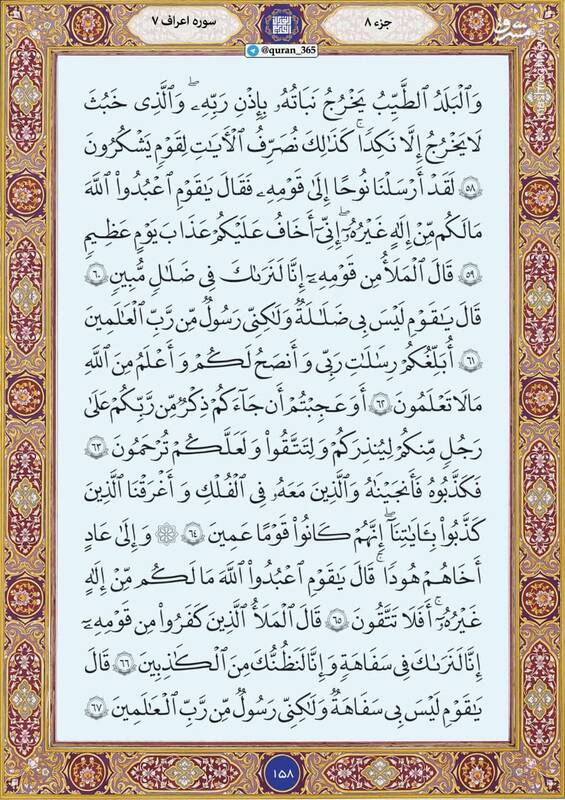 سوره اعراف ۷
جزء ۸
@quran_365
وَٱلْبَلَدُ ٱلطَّيِّبُ يَخْرُجُ نَبَاتُهُۥ بِإِذْنِ رَبِّهِۦۖ وَٱلَّذِى خَبُثَ
لَا يَخْرُجُ إِلَّا نَكِدًاۚ كَذَٰلِكَ نُصَرِّفُ ٱلْأٓيَٰتِ لِقَوْمٍ يَشْكُرُونَ
۵۸ لَقَدْ أَرْسَلْنَا نُوحًا إِلَىٰ قَوْمِهِۦ فَقَالَ يَٰقَوْمِ ٱعْبُدُوا۟ ٱللَّهَ
مَا لَكُم مِّنْ إِلَٰهٍ غَيْرُهُۥٓۖ إِنِّىٓ أَخَافُ عَلَيْكُمْ عَذَابَ يَوْمٍ عَظِيمٍ
۵۹ قَالَ ٱلْمَلَأُ مِن قَوْمِهِۦٓ إِنَّا لَنَرَىٰكَ فِى ضَلَٰلٍ مُّبِينٍ ۶۰
قَالَ يَٰقَوْمِ لَيْسَ بِى ضَلَٰلَةٌ وَلَٰكِنِّى رَسُولٌ مِّن رَّبِّ ٱلْعَٰلَمِينَ
۶۱ أُبَلِّغُكُمْ رِسَٰلَٰتِ رَبِّى وَأَنصَحُ لَكُمْ وَأَعْلَمُ مِنَ ٱللَّهِ
مَا لَا تَعْلَمُونَ ۶۲ أَوَعَجِبْتُمْ أَن جَآءَكُمْ ذِكْرٌ مِّن رَّبِّكُمْ عَلَىٰ
رَجُلٍ مِّنكُمْ لِيُنذِرَكُمْ وَلِتَتَّقُوا۟ وَلَعَلَّكُمْ تُرْحَمُونَ ۶۳
فَكَذَّبُوهُ فَأَنجَيْنَٰهُ وَٱلَّذِينَ مَعَهُۥ فِى ٱلْفُلْكِ وَأَغْرَقْنَا ٱلَّذِينَ
كَذَّبُوا۟ بِـَٔايَٰتِنَآۚ إِنَّهُمْ كَانُوا۟ قَوْمًا عَمِينَ ۶۴ وَإِلَىٰ عَادٍ
أَخَاهُمْ هُودًاۚ قَالَ يَٰقَوْمِ ٱعْبُدُوا۟ ٱللَّهَ مَا لَكُم مِّنْ إِلَٰهٍ
غَيْرُهُۥٓۚ أَفَلَا تَتَّقُونَ ۶۵ قَالَ ٱلْمَلَأُ ٱلَّذِينَ كَفَرُوا۟ مِن قَوْمِهِۦٓ
إِنَّا لَنَرَىٰكَ فِى سَفَاهَةٍ وَإِنَّا لَنَظُنُّكَ مِنَ ٱلْكَٰذِبِينَ ۶۶ قَالَ
يَٰقَوْمِ لَيْسَ بِى سَفَاهَةٌ وَلَٰكِنِّى رَسُولٌ مِّن رَّبِّ ٱلْعَٰلَمِينَ ۶۷
۱۵۸